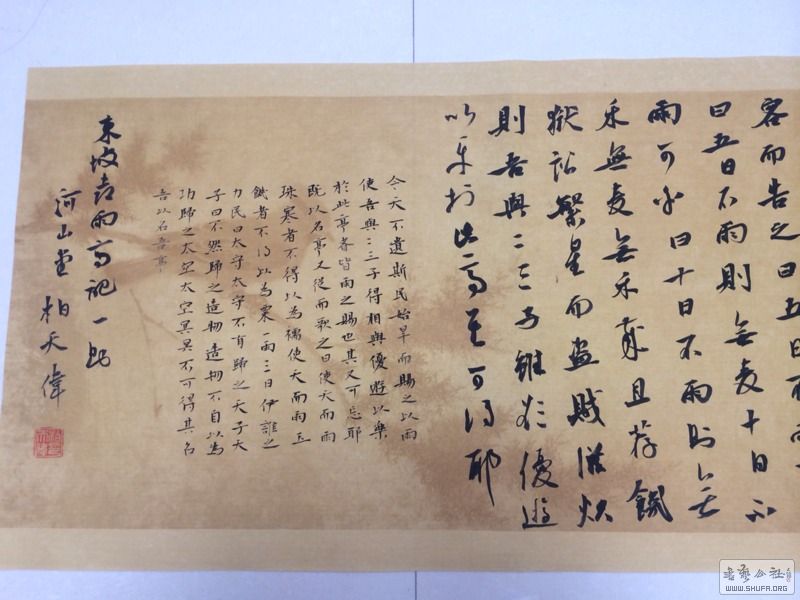 客而告之曰五日不雨
曰五日不雨則無麥十日不
雨可乎曰十日不雨則無
禾無麥無禾歲且荐饑
獄訟繁興而盜賊滋熾
則吾與二三子雖欲優遊
以樂於此亭其可得耶
今天不遺斯民始旱而賜之以雨
使吾與二三子得相與優遊以樂
於此亭者皆雨之賜也其又可忘耶
既以名亭又從而歌之曰使天而雨
珠寒者不得以為襦使天而雨玉
饑者不得以為粟一雨三日伊誰之
力民曰太守太守不有歸之天子天
子曰不然歸之造物造物不自以為
功歸之太空太空冥冥不可得其名
吾以名吾亭
東坡喜雨亭記一
河山堂 柏天偉
書藝公社
WWW.SHUFA.ORG